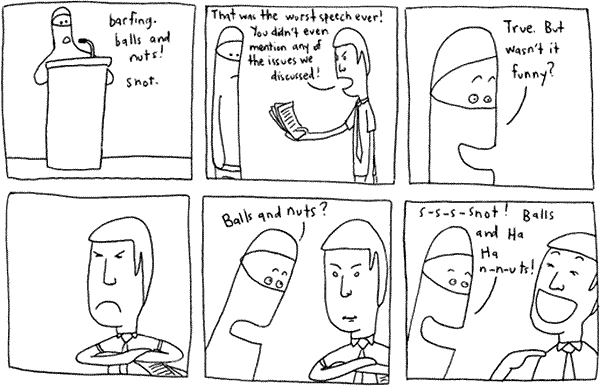 barfing.
balls and
nuts!
Snot.
That was the worst speech ever!
You didn't even
mention any of
the issues we
discussed!
True. But
wasn't it
funny?
Balls and nuts?
s-s-s-snot! Balls
and Ha
Ha
n-n-nuts!